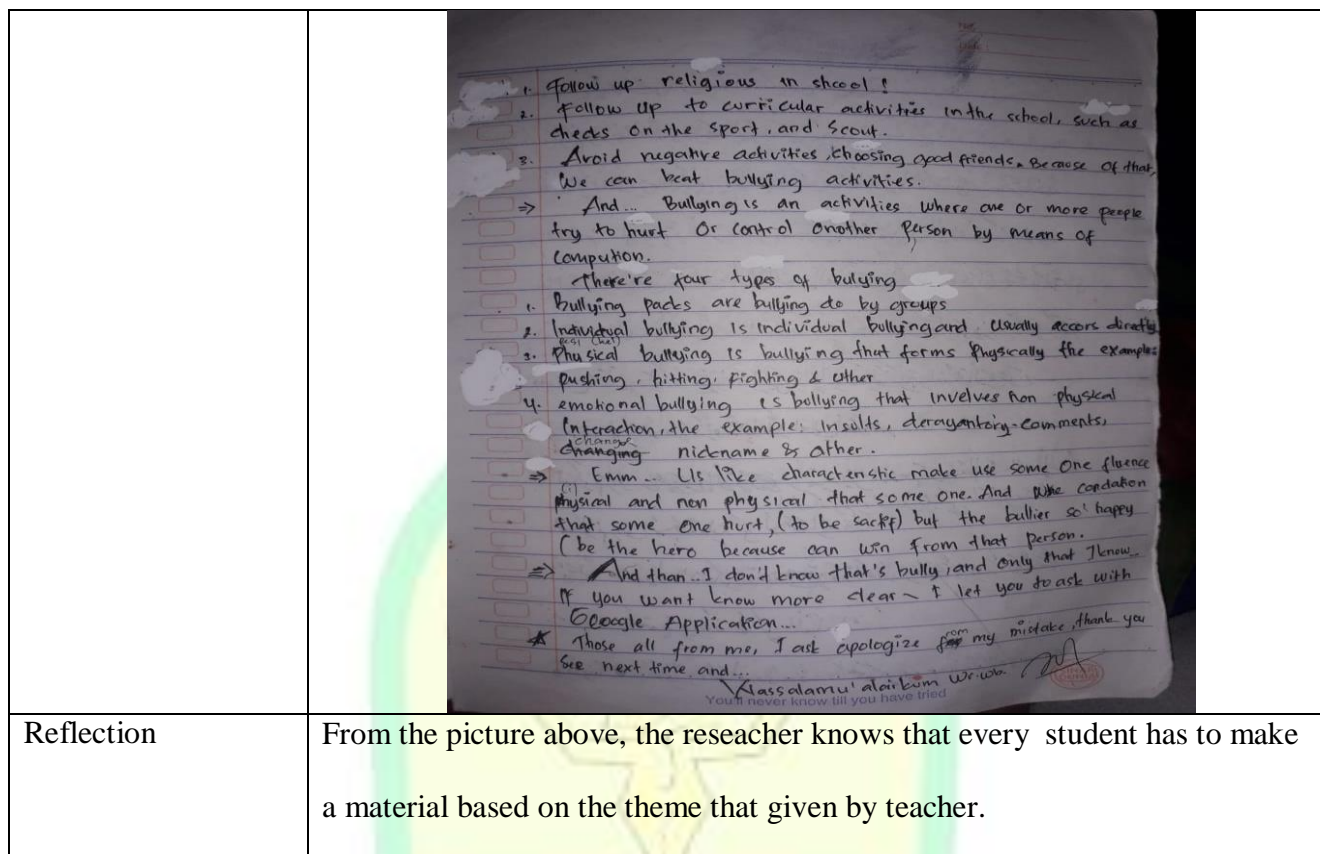 1. Follow up religious in shcool !
2. Follow up to curricular activities in the school, such as
checks on the sport, and Scout.
3. Avoid negative activities, choosing good friends. Because of that,
We can beat bullying activities.
⇒ And... Bullying is an activities where one or more people
try to hurt Or control another person by means of
There're four types of bulying
1. Bullying packs are bullying do by groups
2. Individual bullying is individual bullying and usually accors directly
3. Phusical bullying is bullying that forms Physically the examples
pushing, hitting, Fighting & other
4. emotional bullying is bollying that involves non physical
Interaction, the example: Insults, comments,
change
changing nickname & other.
⇒ Emm... Us like characteristic make use some one fluence
physical and non physical that some one. And condation
that some one hurt, (to be ) but the bullier so' happy
(be the hero because can win from that person.
⇒ And than.. I don't know that's bully, and only that I know..
If you want know more clear ~ I let you to ask with
Geoogle Application...
Those all from me, I ask apologize from my mistake, thank you
See next time and...
Wassalamu'alaikum Wr.Wb.
You'll never know till you have tried
Reflection
From the picture above, the reseacher knows that every student has to make
a material based on the theme that given by teacher.